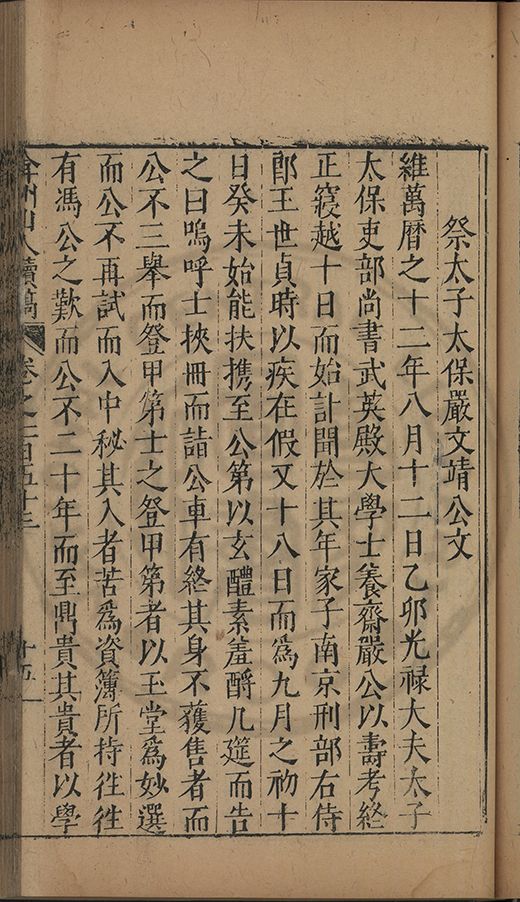 祭太子太保嚴文靖公文
維萬曆之十二年八月十二日乙卯光祿大夫太子
太保吏部尚書武英殿大學士養齋嚴公以壽考終
正寢越十日而始訃聞於其年家子南京刑部右侍
郎王世貞時以疾在假又十八日而爲九月之初十
日癸未始能扶携至公第以玄醴素羞酹几筵而告
之曰嗚呼士挾冊而詣公車有終其身不獲售者而
公不三舉而登甲第士之登甲第者以玉堂爲妙選
而公不再試而入中秘其入者苦爲資簿所持徃徃
有馮公之歎而公不二十年而至鼎貴其貴者以學
弇州山人續稿 卷之一百五十三 十五